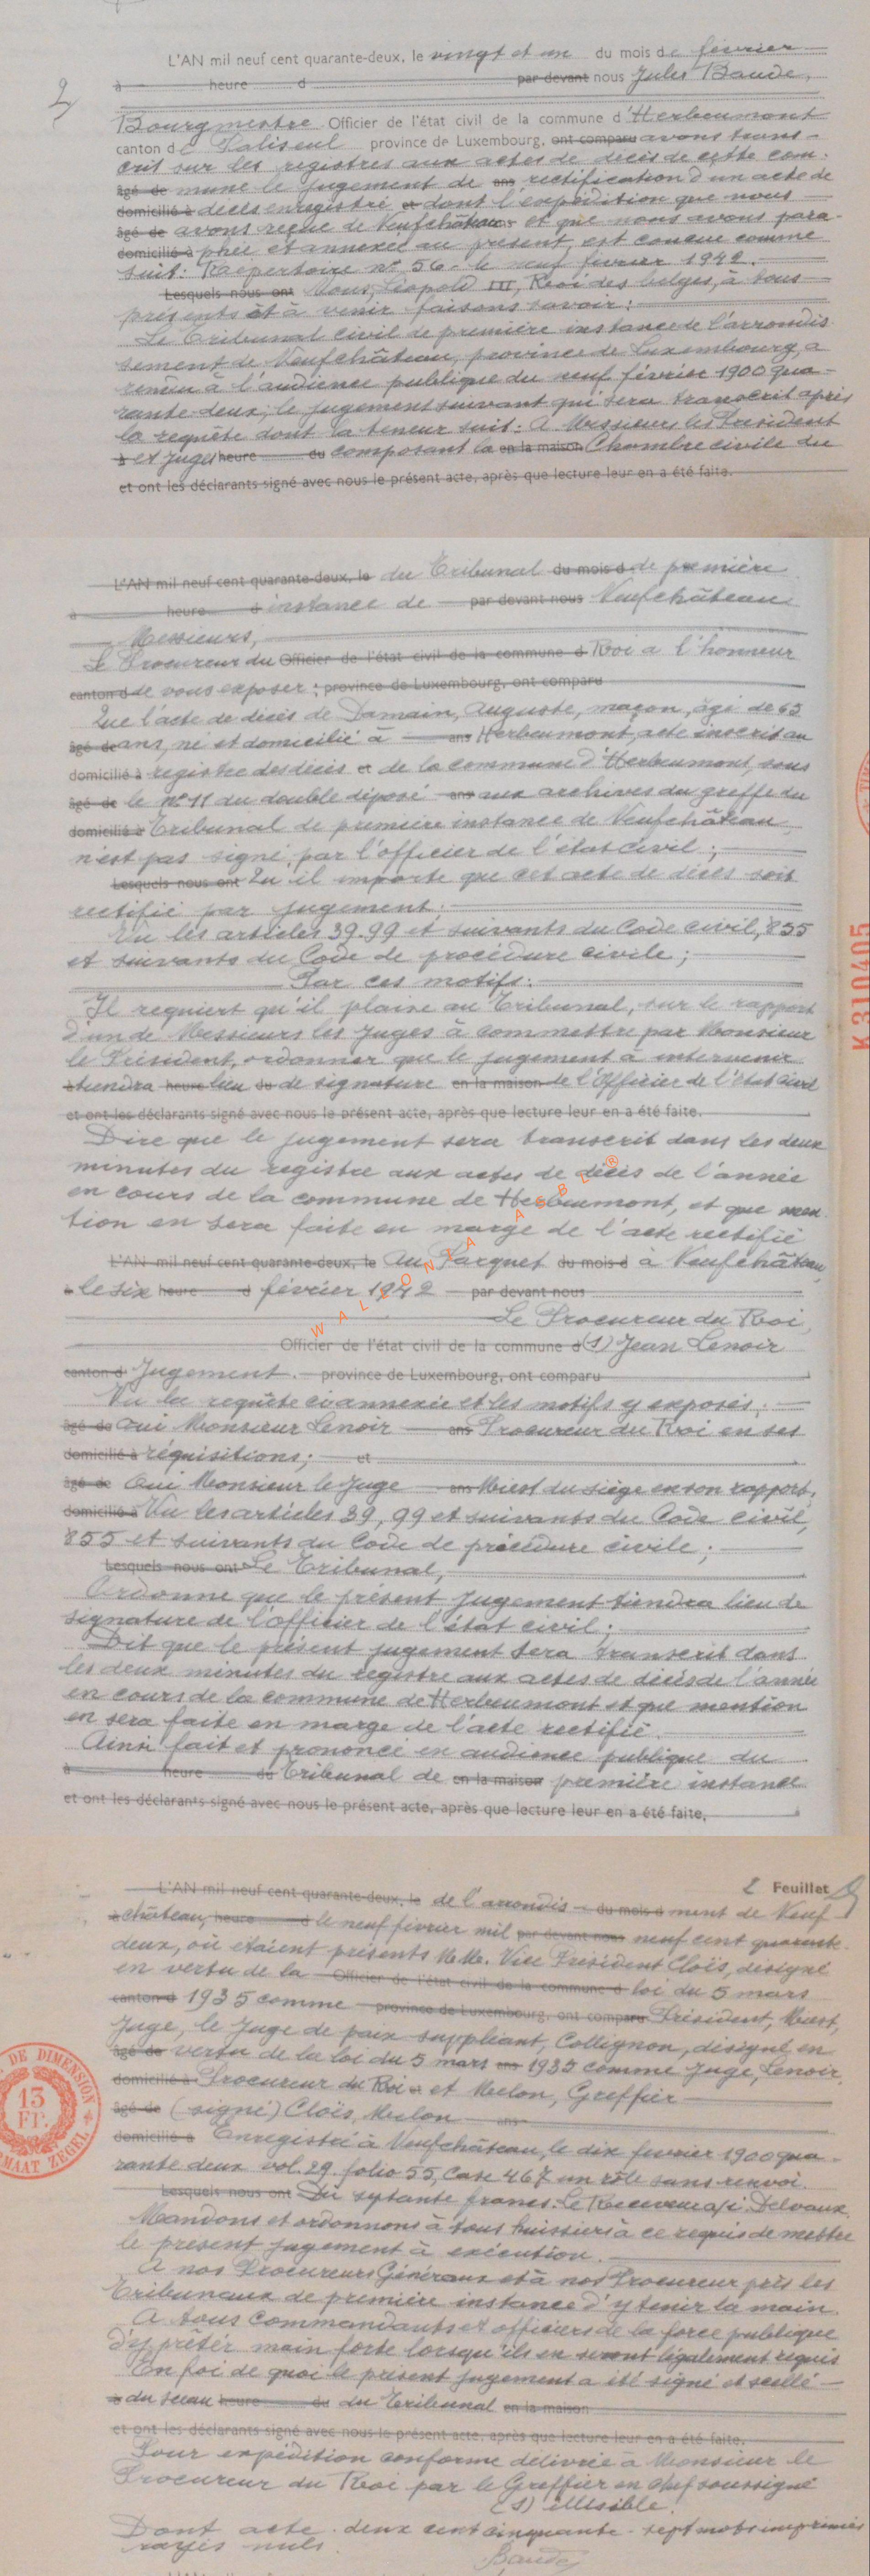 L'AN mil neuf cent quarante-deux, le vingt et un du mois de février
à heure d par devant nous Jules Baude,
2
Bourgmestre Officier de l'état civil de la commune d'Herbeumont
canton de Paliseul province de Luxembourg, ont comparu avons trans-
crit sur les registres aux actes de décès de cette com-
âgé de mune le jugement de ans rectification d'un acte de
domicilié à décès enregistré et dont l'expédition que nous
âgé de avons reçue de Neufchâteau et que nous avons para-
domicilié à phée et annexée au présent, est conçue comme
suit: Raepertoire n° 56. le neuf février 1942.
Lesquels nous ont Nous, Léopold III, Roi des belges, à tous
présents et à venir faisons savoir:
Le Tribunal civil de première instance de l'arrondis-
sement de Neufchâteau, province de Luxembourg, a
rendu à l'audience publique du neuf février 1900 qua-
rante-deux, le jugement suivant qui sera transcrit après
la requête dont la teneur suit: A Messieurs les Président
à et juges heure du composant la en la maison Chambre civile du
et ont les déclarants signé avec nous le présent acte, après que lecture leur en a été faite.
L'AN mil neuf cent quarante-deux, le du Tribunal du mois d de première
à heure d instance de par devant nous Neufchâteau
Messieurs,
Le Procureur du Officier de l'état civil de la commune d Roi a l'honneur
canton d de vous exposer : province de Luxembourg, ont comparu
Que l'acte de décès de Damain, Auguste, maçon, âgé de 63
âgé de ans, né et domicilié à ans Herbeumont, acte inscrit au
domicilié à registre des décès et de la commune d'Herbeumont, sous
âgé de le n° 11 du double déposé ans aux archives du greffe du
domicilié à Tribunal de première instance de Neufchâteau
n'est pas signé, par l'officier de l'état civil ;
Lesquels nous ont Qu'il importe que cet acte de décès soit
rectifié par jugement;
Vu les articles 39.99 et suivants du Code civil, 855
et suivants du Code de procédure civile ;
Par ces motifs:
Il requiert qu'il plaise au Tribunal, sur le rapport
d'un de Messieurs les Juges à commettre par Monsieur
le Président, ordonner que le jugement à intervenir
à tiendra heure lieu du de signature en la maison de l'Officier de l'état civil
et ont les déclarants signé avec nous le présent acte, après que lecture leur en a été faite.
Dire que le jugement sera transcrit dans les deux
minutes du registre aux actes de décès de l'année
en cours de la commune de Herbeumont, et que men-
tion en sera faite en marge de l'acte rectifié
L'AN mil neuf cent quarante-deux, le Au Parquet du mois d à Neufchâteau,
à le six heure d février 1942 par devant nous
Le Procureur du Roi,
Officier de l'état civil de la commune d (S) Jean Lenoir
canton d Jugement. province de Luxembourg, ont comparu
Vu la requête ci-annexée et les motifs y exposés;
âgé de Oui Monsieur Lenoir ans Procureur du Roi en ses
domicilié à réquisitions; et
âgé de Oui Monsieur le Juge ans Miest du siège en son rapport;
domicilié à Vu les articles 39, 99 et suivants du Code civil,
855 et suivants du Code de procédure civile ;
Lesquels nous ont Le Tribunal,
Ordonne que le présent jugement tiendra lieu de
signature de l'officier de l'état civil ;
Dit que le présent jugement sera transcrit dans
les deux minutes du registre aux actes de décès de l'année
en cours de la commune de Herbeumont et que mention
en sera faite en marge de l'acte rectifié.
Ainsi fait et prononcé en audience publique du
à heure du Tribunal de en la maison première instance
et ont les déclarants signé avec nous le présent acte, après que lecture leur en a été faite.
K 310405
WALLONIA ASBL ®
2 Feuillet
L'AN mil neuf cent quarante-deux, le de l'arrondis- du mois d ment de Neuf-
à château, heure d le neuf février mil par devant nous neuf cent quarante-
deux, où étaient présents M.M. Vice Président Cloïs, désigné
en vertu de la Officier de l'état civil de la commune d loi du 5 mars
canton d 1935 comme province de Luxembourg, ont comparu Président, Miest,
Juge, le Juge de paix suppléant, Collignon, désigné en
âgé de vertu de la loi du 5 mars ans 1935 comme Juge, Lenoir,
domicilié à Procureur du Roi et et Melon, Greffier
âgé de (signé) Cloïs, Melon ans
domicilié à Enregistré à Neufchâteau, le dix février 1900 qua-
rante deux vol. 29. folio 55, Case 467 un rôle sans renvoi.
Lesquels nous ont Dû septante francs. Le Receveur a/i. Delvaux.
Mandons et ordonnons à tous huissiers à ce requis de mettre
le présent jugement à exécution.
A nos Procureurs Généraux et à nos Procureur près les
Tribunaux de première instance d'y tenir la main.
A tous Commandants et officiers de la force publique
d'y prêter main forte lorsqu'ils en seront légalement requis
En foi de quoi le présent jugement a été signé et scellé
à du sceau heure du du Tribunal en la maison
et ont les déclarants signé avec nous le présent acte, après que lecture leur en a été faite.
Pour expédition conforme délivrée à Monsieur le
Procureur du Roi par le Greffier en chef soussigné
(S) illisible.
Dont acte. deux cent cinquante-sept mots imprimés
rayés nuls.
Baude
DE DIMENSION
13
FR.
RMAAT ZEGEL